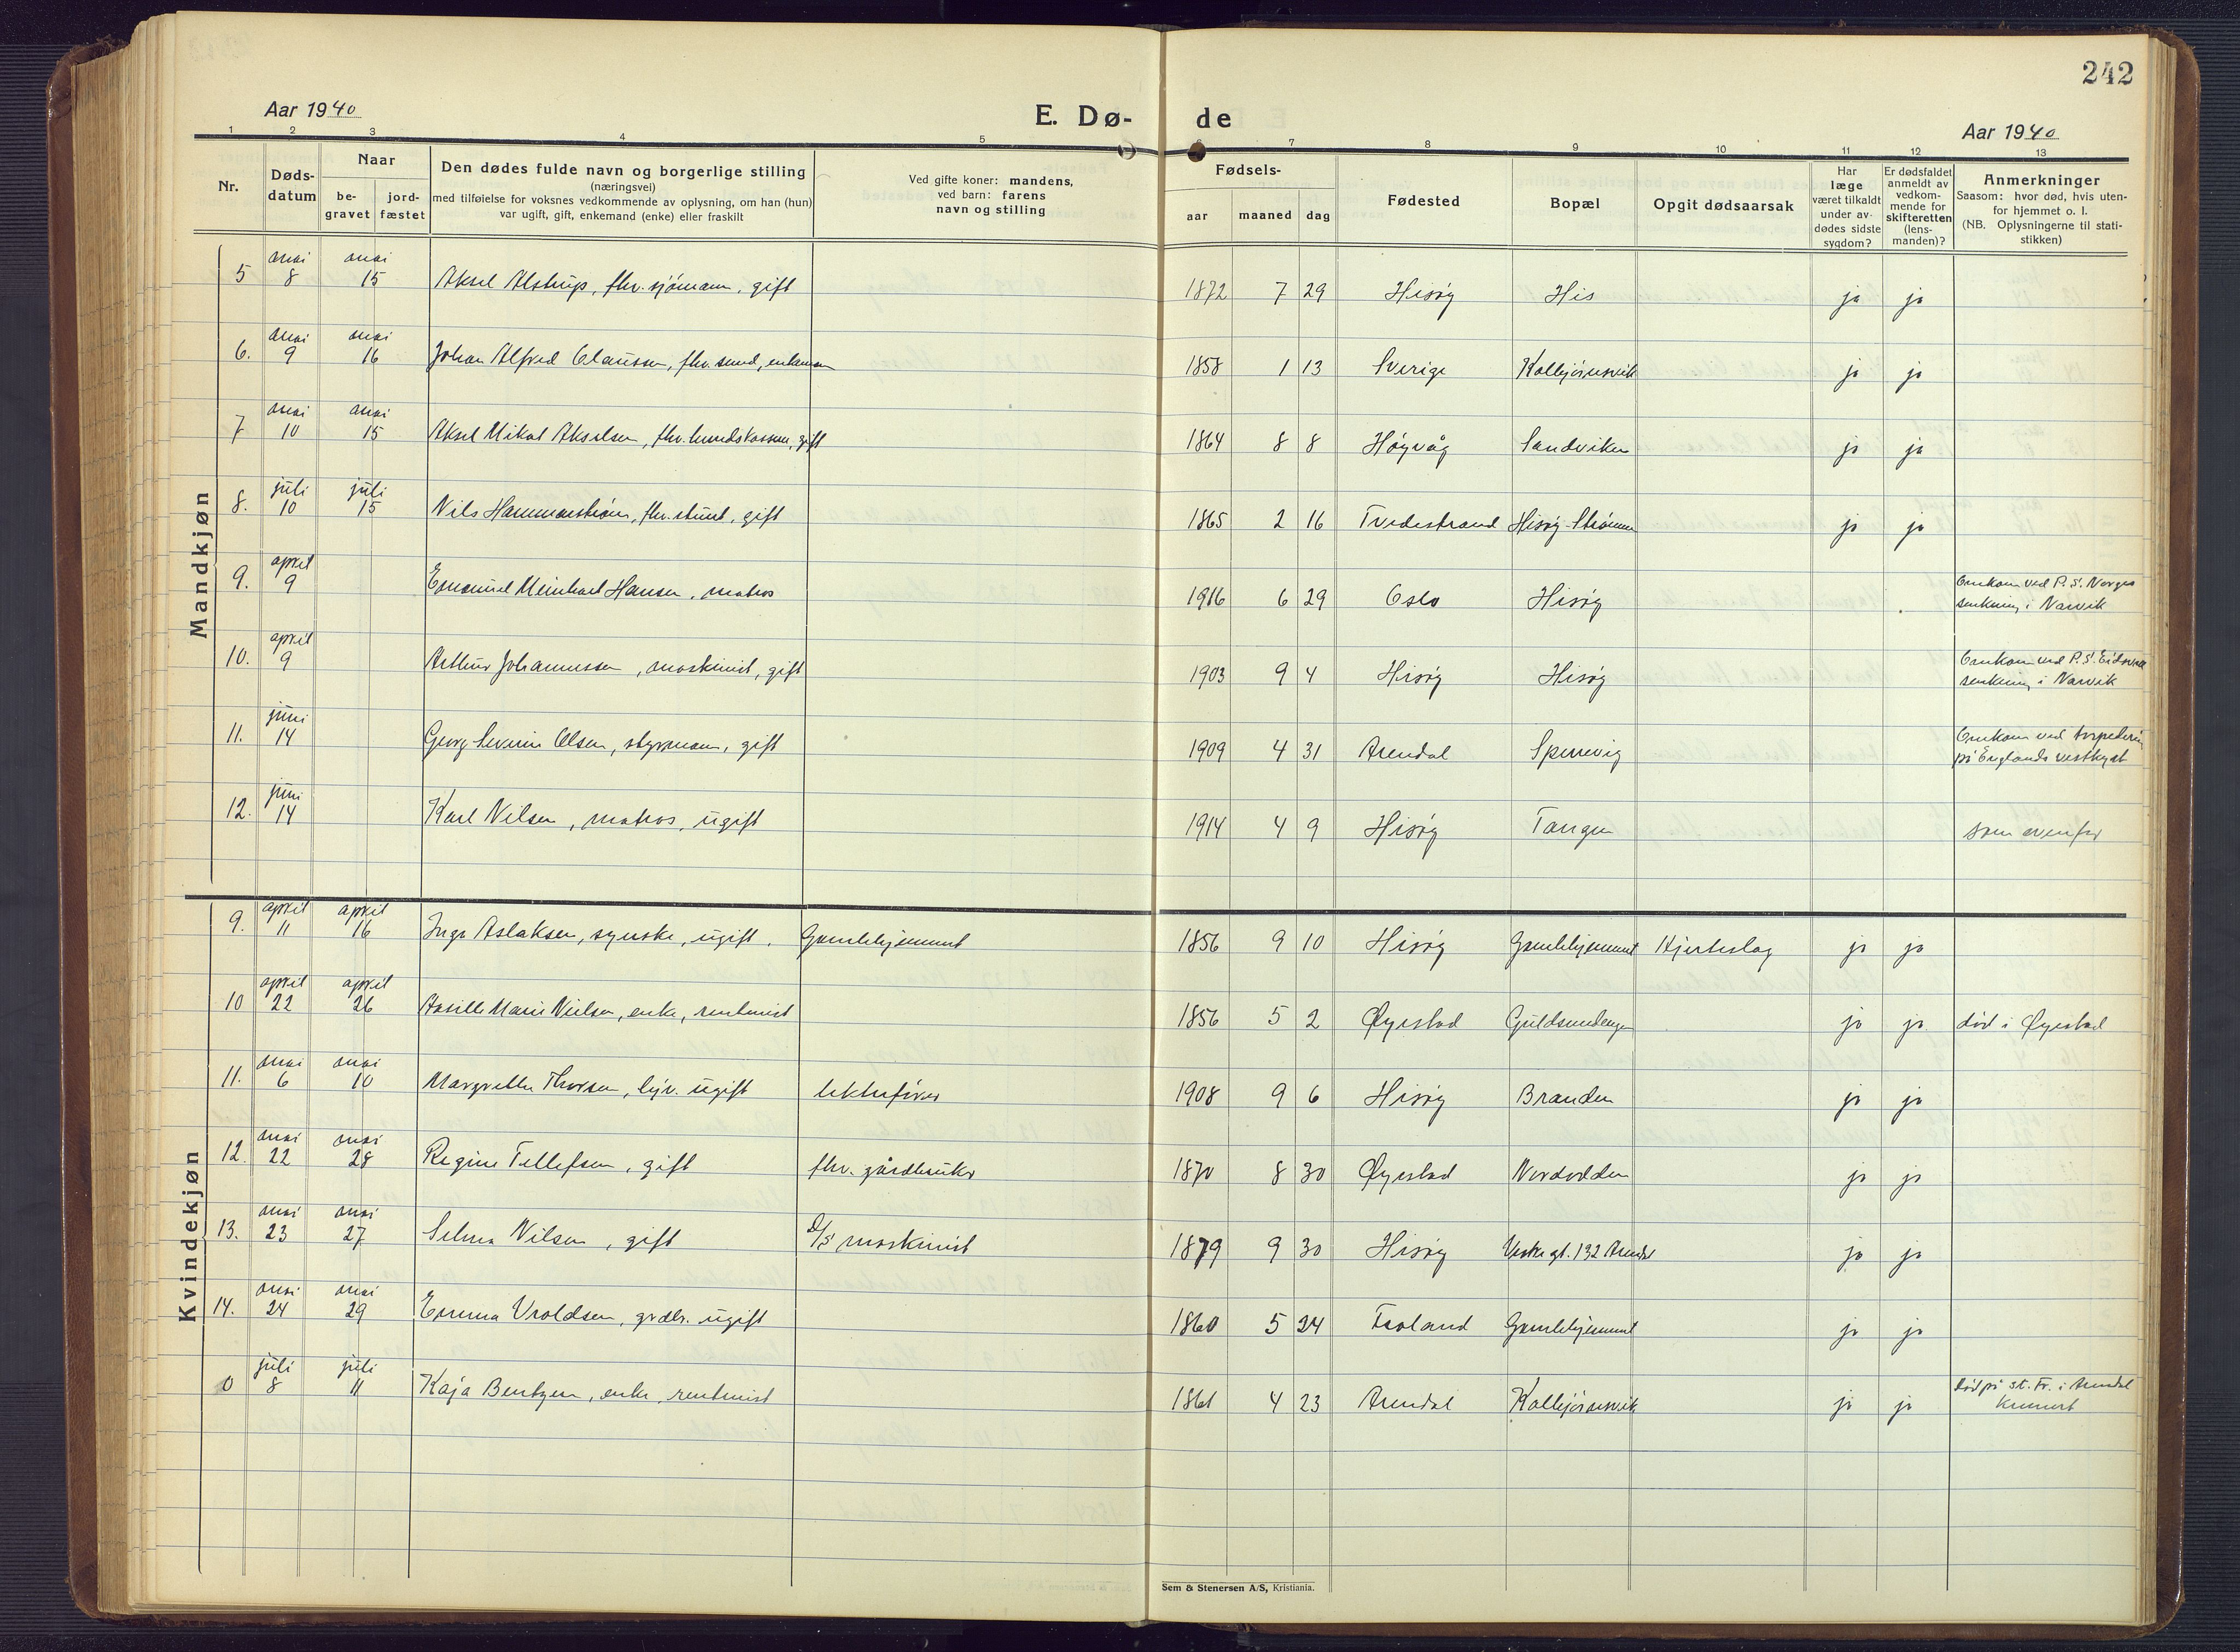 242
Aar 1940
E. Dø- de
Aar 1940
1 2 3 4 5 6 7 8 9 10 11 12 13
Nr.
Døds-
datum
Naar
be-
gravet
jord-
fæstet
Den dødes fulde navn og borgerlige stilling
(næringsvei)
med tilføielse for voksnes vedkommende av oplysning, om han (hun)
var ugift, gift, enkemand (enke) eller fraskilt
Ved gifte koner: mandens,
ved barn: farens
navn og stilling
Fødsels-
aar maaned dag
Fødested
Bopæl
Opgit dødsaarsak
Har
læge
været tilkaldt
under av-
dødes sidste
sygdom?
Er dødsfaldet
anmeldt av
vedkom-
mende for
skifteretten
(lens-
manden)?
Anmerkninger
Saasom: hvor død, hvis uten-
for hjemmet o. l.
(NB. Oplysningerne til stati-
stikken)
Mandkjøn
mai mai
5 8 15 Aksel Alstrup, fhv. sjömann, gift 1872 7 29 Hisöy His ja ja
mai mai
6. 9 16 Johan Alfred Claussen, fhv. 1858 1 13 Sverige Kolbjörnsvik ja ja
mai mai
7 10 15 Aksel Mikal Akselsen, fhv. gift 1864 8 8 Högvåg Sandviken ja ja
juli juli
8. 10 15 Nils fhv. gift 1865 2 16 Tvedestrand Hisöy Strömmen ja ja
april
9. 9 Emanuel Meinhart Hansen, matros 1916 6 29 Oslo Hisöy Omkom ved P.S. Norges
senkning i Narvik
april
10. 9 Arthur Johannessen, maskinist, gift 1903 9 4 Hisöy Hisöy Omkom ved P.S. Eidsvold
senkning i Narvik
juni
11. 14 Georg Severin Olsen, styrmann, gift 1909 4 31 Arendal Spervig Omkom ved torpedering
på Englands vestkyst
juni
12. 14 Karl Nilsen, matros, ugift 1914 4 9 Hisöy Tangen som ovenfor
Kvindekjøn
april april
9. 11 16 Inga Aslaksen, syerske, ugift. Gamlehjemmet 1856 9 10 Hisöy Gamlehjemmet Hjerteslag ja ja
april april
10 22 26 Marie Nielsen, enke, rentenist 1856 5 2 Øyestad Guldsmedengen ja ja död i Øyestad
mai mai
11. 6 10 Margrethe Thorsen, ugift 1908 9 6 Hisöy Branden ja ja
mai mai
12. 22 28 Regine Tellefsen, gift fhv. gårdbruker 1870 8 30 Øyestad Nordodden ja ja
mai mai
13. 23 27 Selma Nilsen, gift D/S maskinist 1879 9 30 Hisöy Vestre gt. 132 Arendal ja ja
mai mai
14. 24 29 Emma Vroldsen, ugift 1860 5 24 Froland Gamlehjemmet ja ja
juli juli
0 8 11 Kaja Bentzen, enke, rentenist 1861 4 23 Arendal Kolbjörnsvik ja ja död på St. Fr. i Arendal
Kremert
Sem & Stenersen A/S, Kristiania.